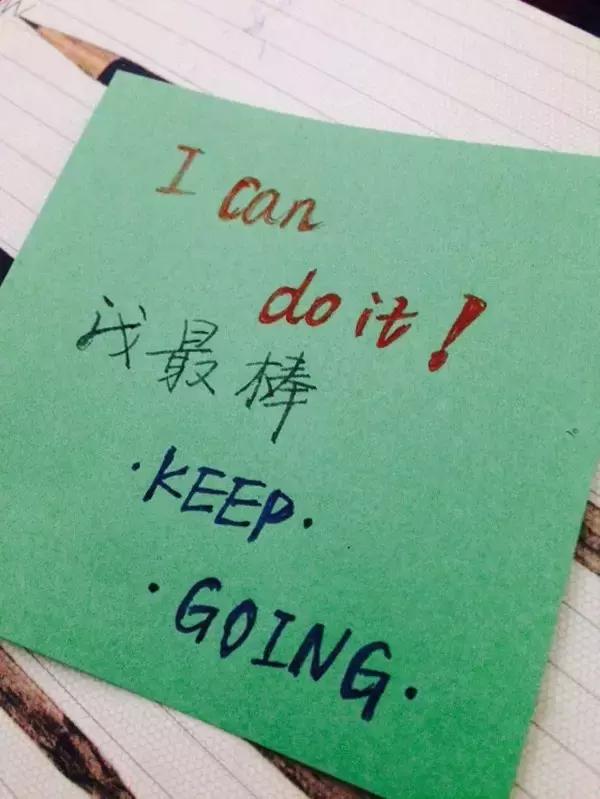 I can
do it!
我最棒
·KEEP.
·GOING.